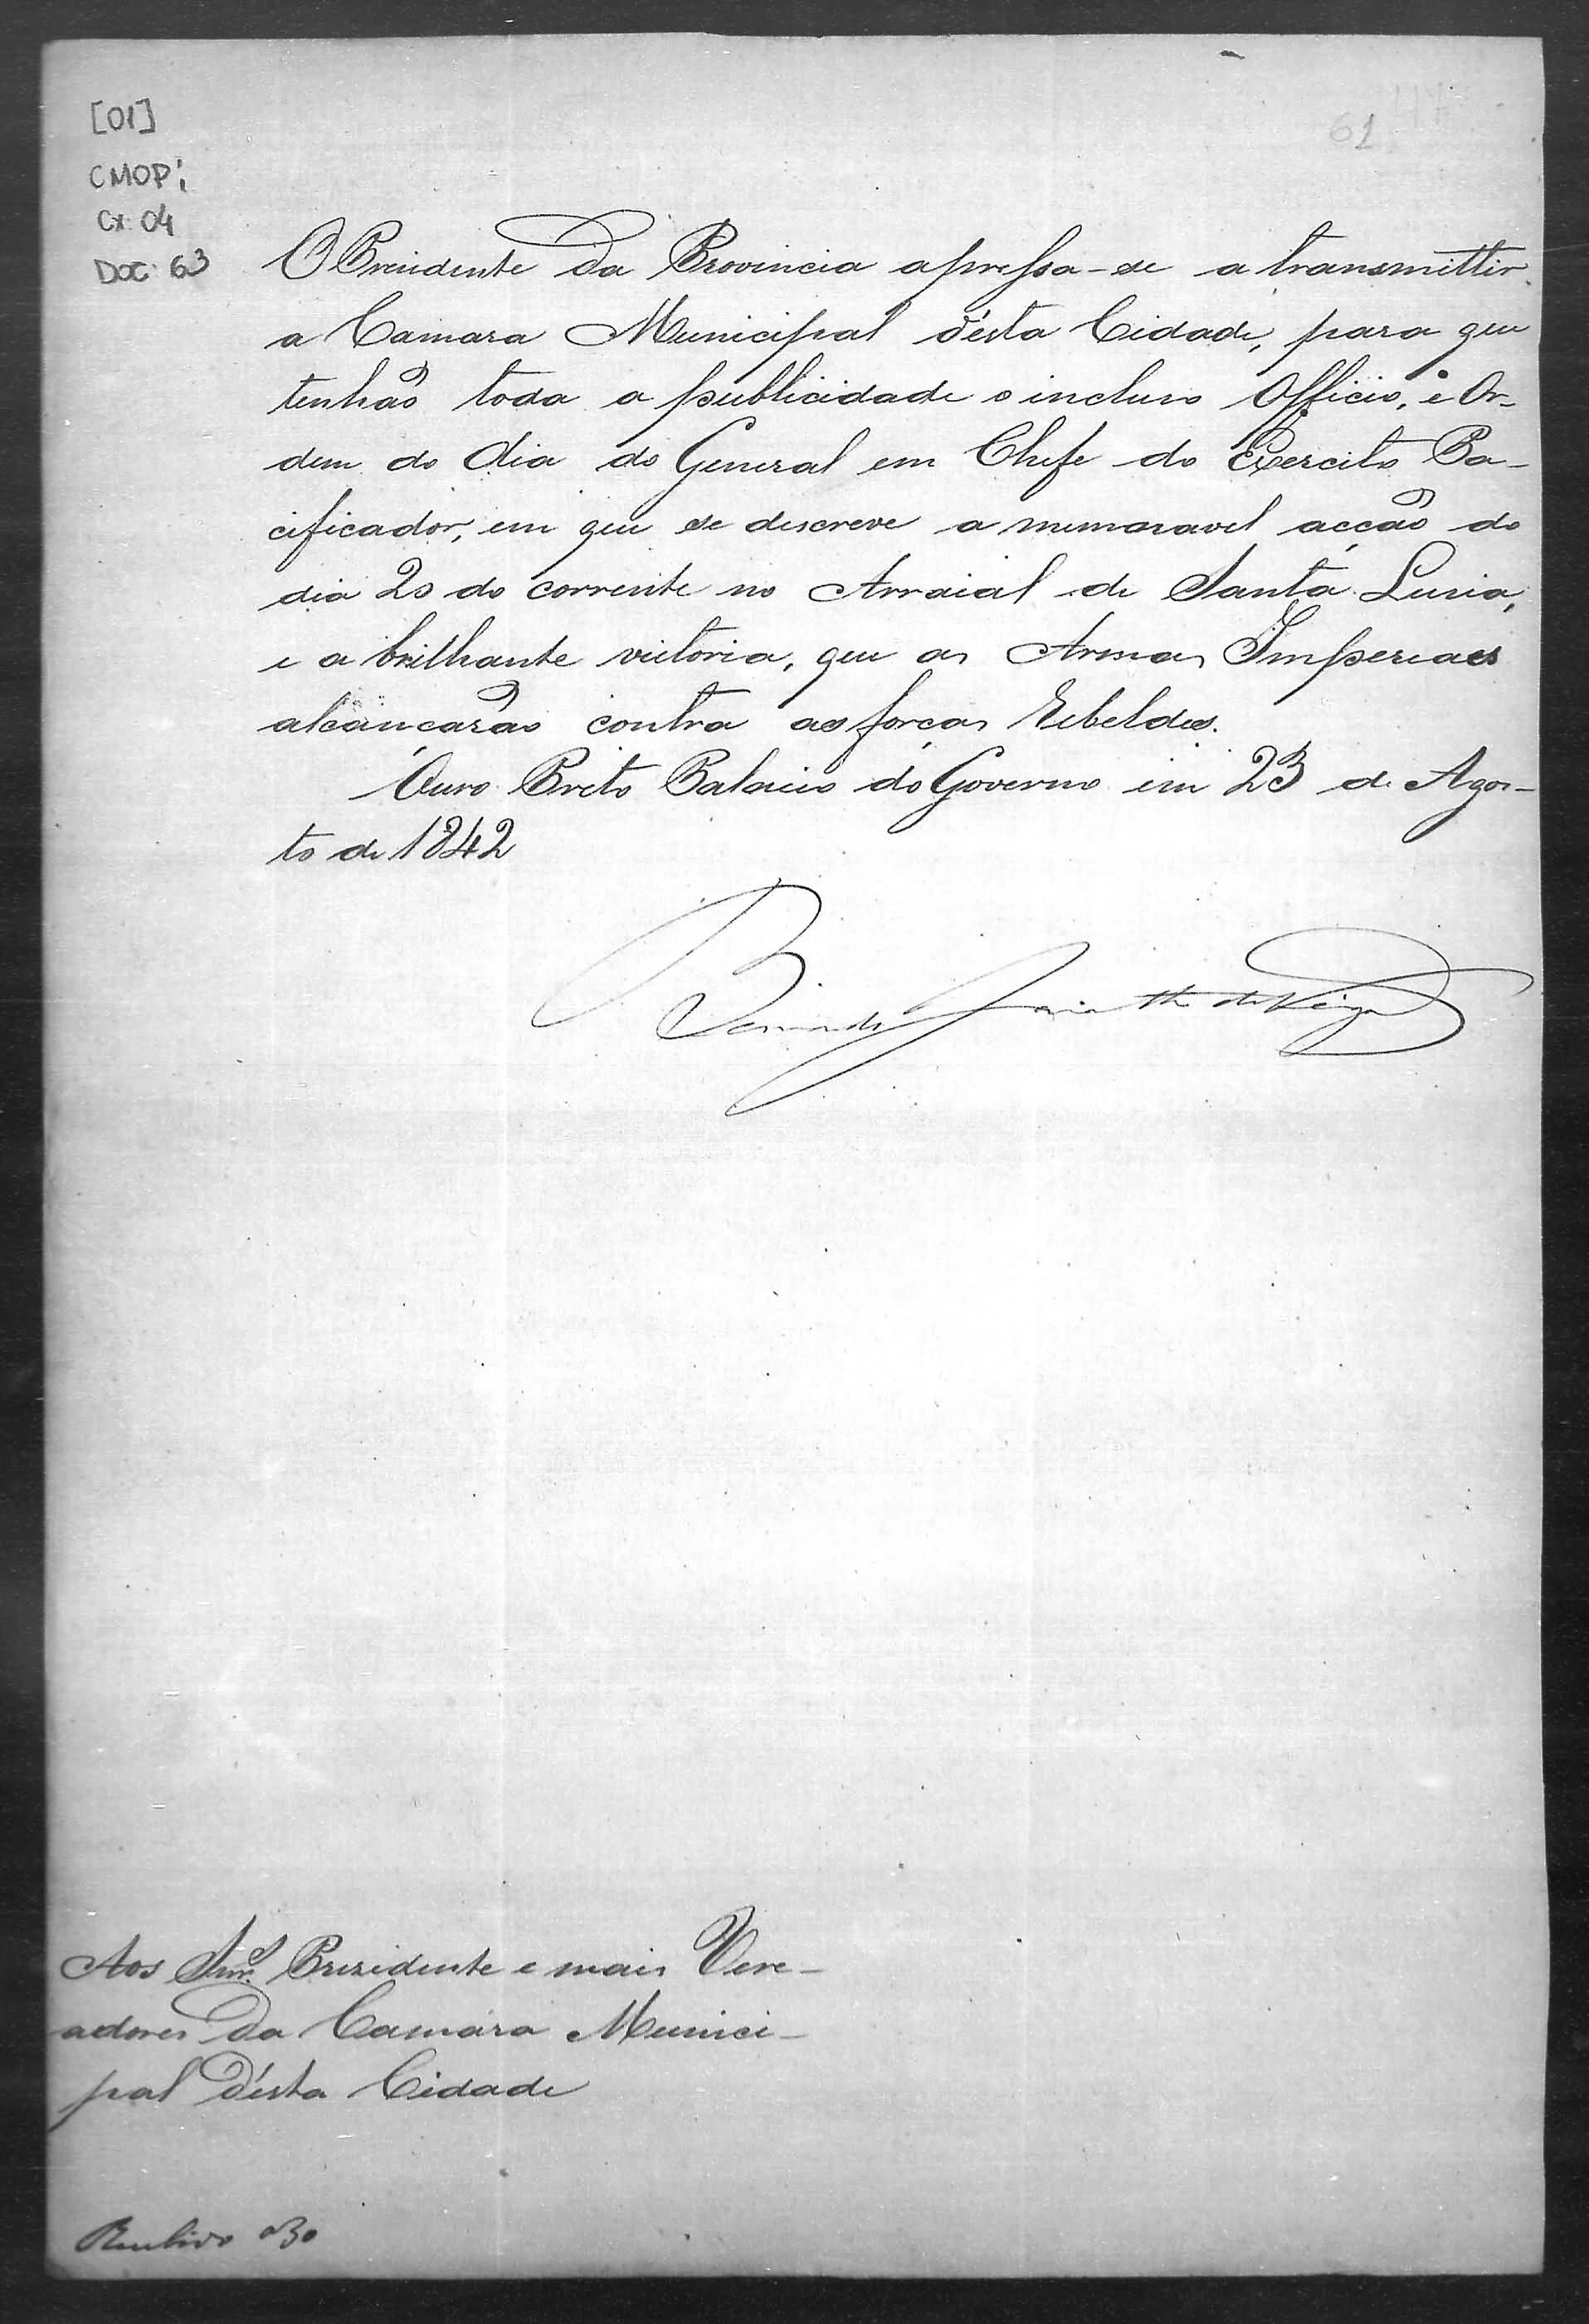 [01]
CMOP;
Cx: 04
DOC: 63
61
O Prezidente da Provincia apressa-se a transmittir
a Camara Municipal d'ésta Cidade, para que
tenhão toda a publicidade o incluso Officio, e Or-
dem do dia do General em Chefe do Exercito Pa-
cificador, em que se descreve a memoravel acção do
dia 20 do corrente no Arraial de Santa Lusia,
e a brilhante victoria, que as Armas Imperiaes
alcançarão contra as forças Rebeldes.
Ouro Preto Palacio do Governo em 23 de Agos-
to de 1842
Bernardo Jacintho da Veiga
Aos Snr.es Prezidente e mais Vere-
adores da Camara Munici-
pal d'ésta Cidade